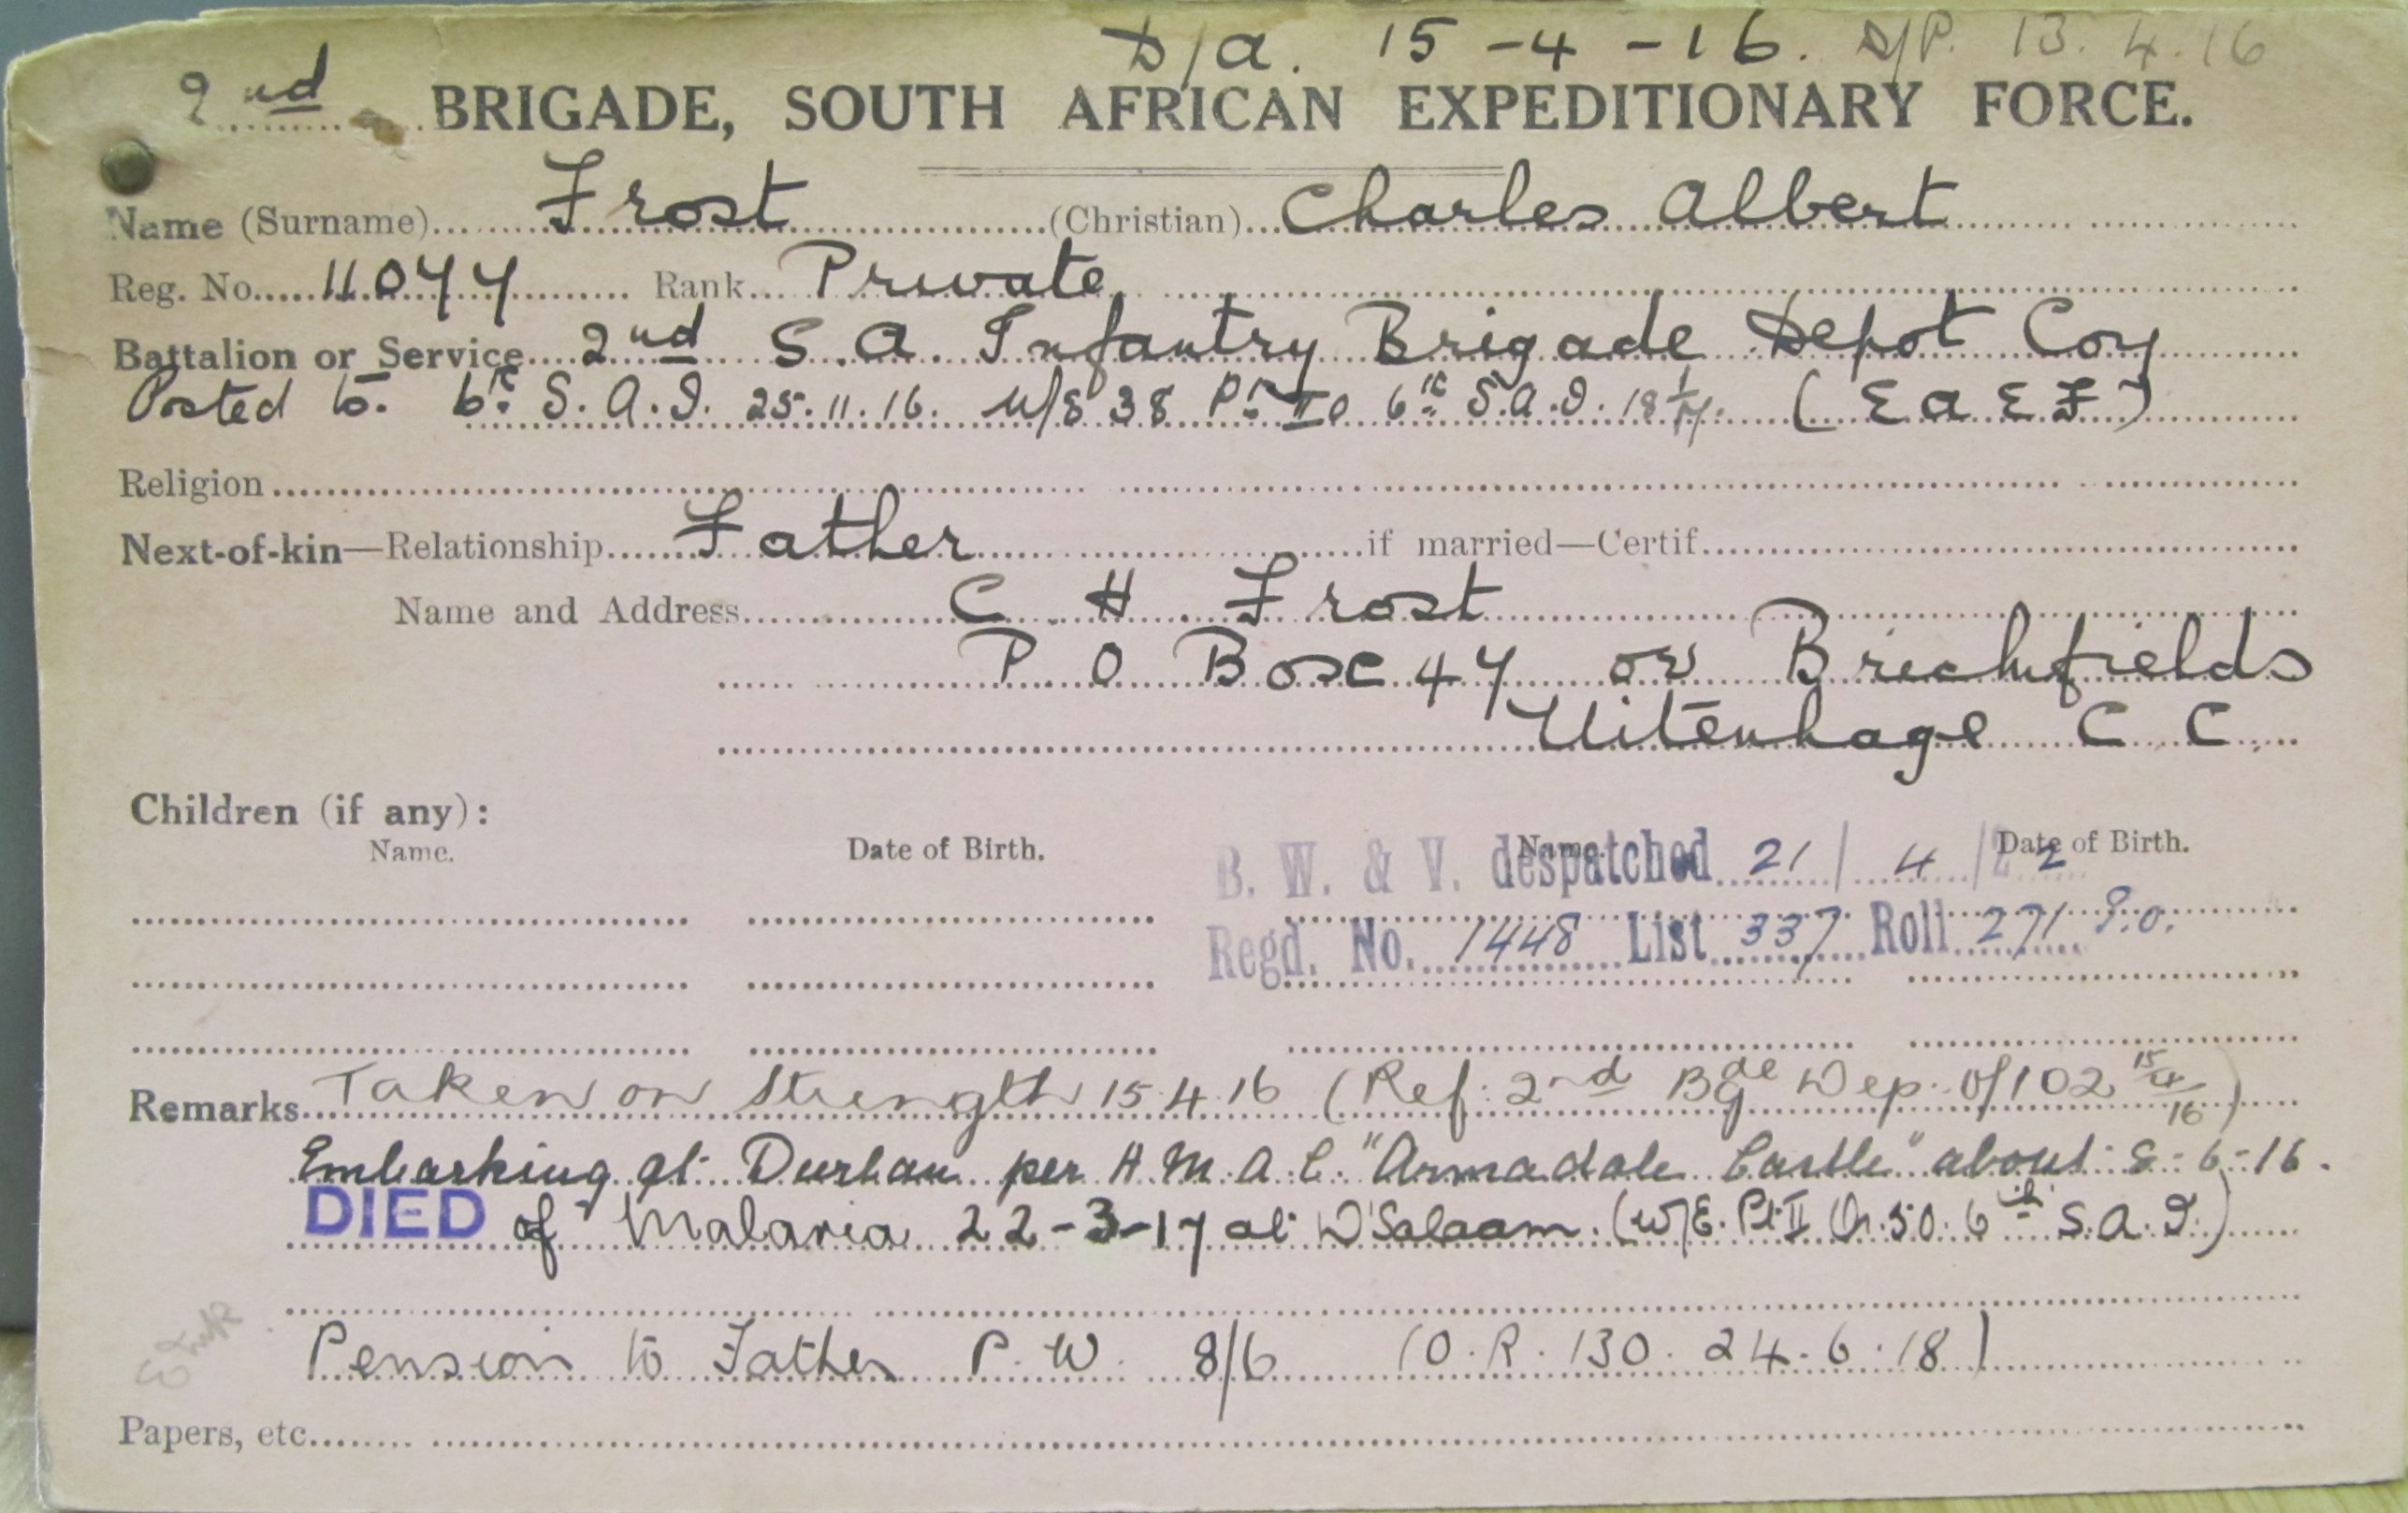 D/a. 15-4-16. D/P. 13.4.16
2nd BRIGADE, SOUTH AFRICAN EXPEDITIONARY FORCE.
Name (Surname) Frost (Christian) Charles Albert
Reg. No. 11077 Rank Private
Battalion or Service 2nd S.A. Infantry Brigade Depot Coy
Posted to. 6th S.A.I. 25.11.16. 38 Pt II O 6th S.A.I. (E A E F)
Religion
Next-of-kin—Relationship Father if married—Certif.
Name and Address C H Frost
P O Box 47 or Brickfields
Uitenhage C C
Children (if any):
Name. Date of Birth. Name. Date of Birth.
B. W. & V. despatched 21/4/22
Regd. No. 1448 List 337 Roll 271 P.O.
Remarks Taken on Strength 15.4.16 (Ref: 2nd Bgde Dep. O/102 15/4/16)
Embarking at Durban per H.M.A.T. "Armadale Castle" about 8-6-16.
DIED of Malaria 22-3-17 at D'Salaam. (W/E. Pt II Or. 50. 6th S.A.I.)
Pension to Father P.W. 8/6 (O.R. 130. 24.6.18)
Papers, etc.